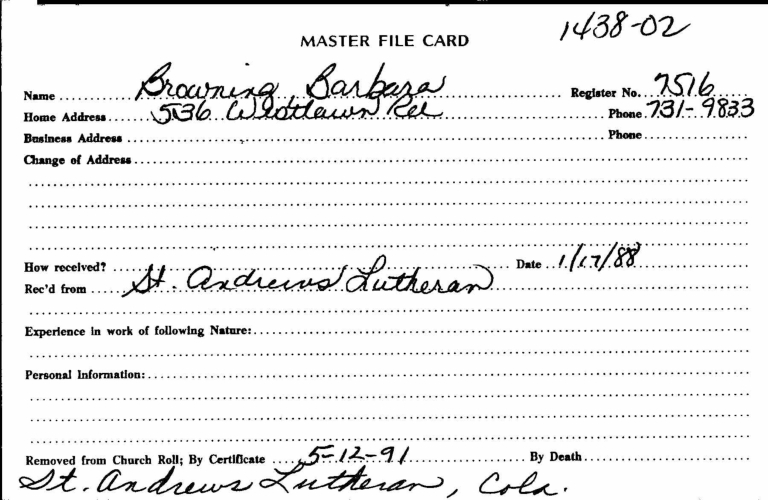 1438-02
MASTER FILE CARD
Name Browning, Barbara Register No. 7516
Home Address 536 Westlawn Rd Phone 731-9833
Business Address Phone
Change of Address
How received? Date 1/17/88
Rec'd from St. Andrews Lutheran
Experience in work of following Nature:
Personal Information:
Removed from Church Roll; By Certificate 5-12-91 By Death
St. Andrews Lutheran, Cola.